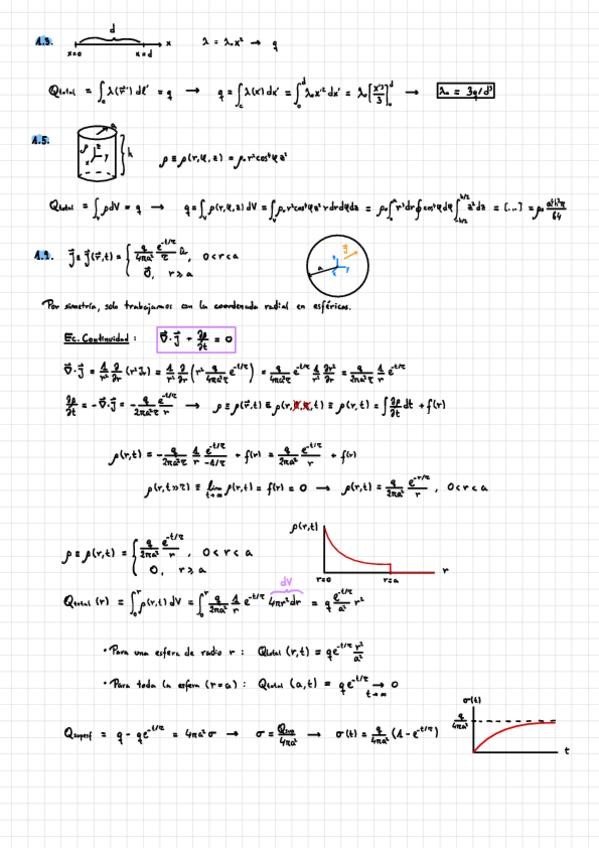 1.3. d x=0 x=d x λ = λ₀x² → q
Qtotal = ∫_c λ(r⃗') dl' = q → q = ∫_c λ(x') dx' = ∫₀^d λ₀x'² dx' = λ₀[x'³/3]₀^d → λ₀ = 3q/d³
1.5. a ρ z y x h ρ ≡ ρ(r,φ,z) = ρ₀ r² cos²φ z²
Qtotal = ∫_V ρdV = q → q = ∫_V ρ(r,φ,z) dV = ∫_V ρ₀ r² cos²φ z² r dr dφ dz = ρ₀ ∫₀^a r³dr ∮ cos²φ dφ ∫_{-h/2}^{h/2} z² dz = [...] = ρ₀ a⁴h³π/64
1.9. J⃗ ≡ J⃗(r⃗,t) = { q/4πa² e^{-t/τ}/τ û_r, 0<r<a
0⃗, r≥a
a J⃗
Por simetría, solo trabajamos con la coordenada radial en esféricas.
Ec. Continuidad: ∇⃗·J⃗ + ∂ρ/∂t = 0
∇⃗·J⃗ = 1/r² ∂/∂r (r²J_r) = 1/r² ∂/∂r (r² q/4πa²τ e^{-t/τ}) = q/4πa²τ e^{-t/τ} 1/r² ∂r²/∂r = q/2πa²τ 1/r e^{-t/τ}
∂ρ/∂t = -∇⃗·J⃗ = -q/2πa²τ e^{-t/τ}/r → ρ ≡ ρ(r⃗,t) ≡ ρ(r,θ,φ,t) ≡ ρ(r,t) = ∫ ∂ρ/∂t dt + f(r)
ρ(r,t) = -q/2πa²τ 1/r e^{-t/τ}/-1/τ + f(r) = q/2πa² e^{-t/τ}/r + f(r)
ρ(r,t≫τ) ≡ lim_{t→∞} ρ(r,t) = f(r) = 0 → ρ(r,t) = q/2πa² e^{-t/τ}/r, 0<r<a
ρ ≡ ρ(r,t) = { q/2πa² e^{-t/τ}/r, 0<r<a
0, r≥a
ρ(r,t) r=0 r=a r
Qtotal (r) = ∫₀^r ρ(r,t) dV = ∫₀^r q/2πa² 1/r e^{-t/τ} 4πr²dr = q e^{-t/τ}/a² r²
dV
• Para una esfera de radio r: Qtotal (r,t) = qe^{-t/τ} r²/a²
• Para toda la esfera (r=a): Qtotal (a,t) = qe^{-t/τ} → 0
t→∞
Qsuperf = q - qe^{-t/τ} = 4πa²σ → σ = Qsup/4πa² → σ(t) = q/4πa² (1 - e^{-t/τ})
σ(t) q/4πa² t